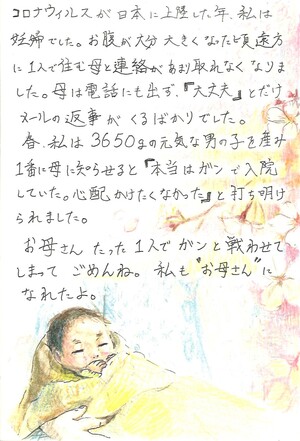 コロナウィルスが日本に上陸した年、私は
妊婦でした。お腹が大分大きくなった頃遠方
に1人で住む母と連絡があまり取れなくなりま
した。母は電話にも出ず、『大丈夫』とだけ
メールの返事がくるばかりでした。
春、私は3650gの元気な男の子を産み
1番に母に知らせると『本当はガンで入院
していた。心配かけたくなかった』と打ち明け
られました。
お母さんたった1人でガンと戦わせて
しまってごめんね。私も"お母さん"に
なれたよ。